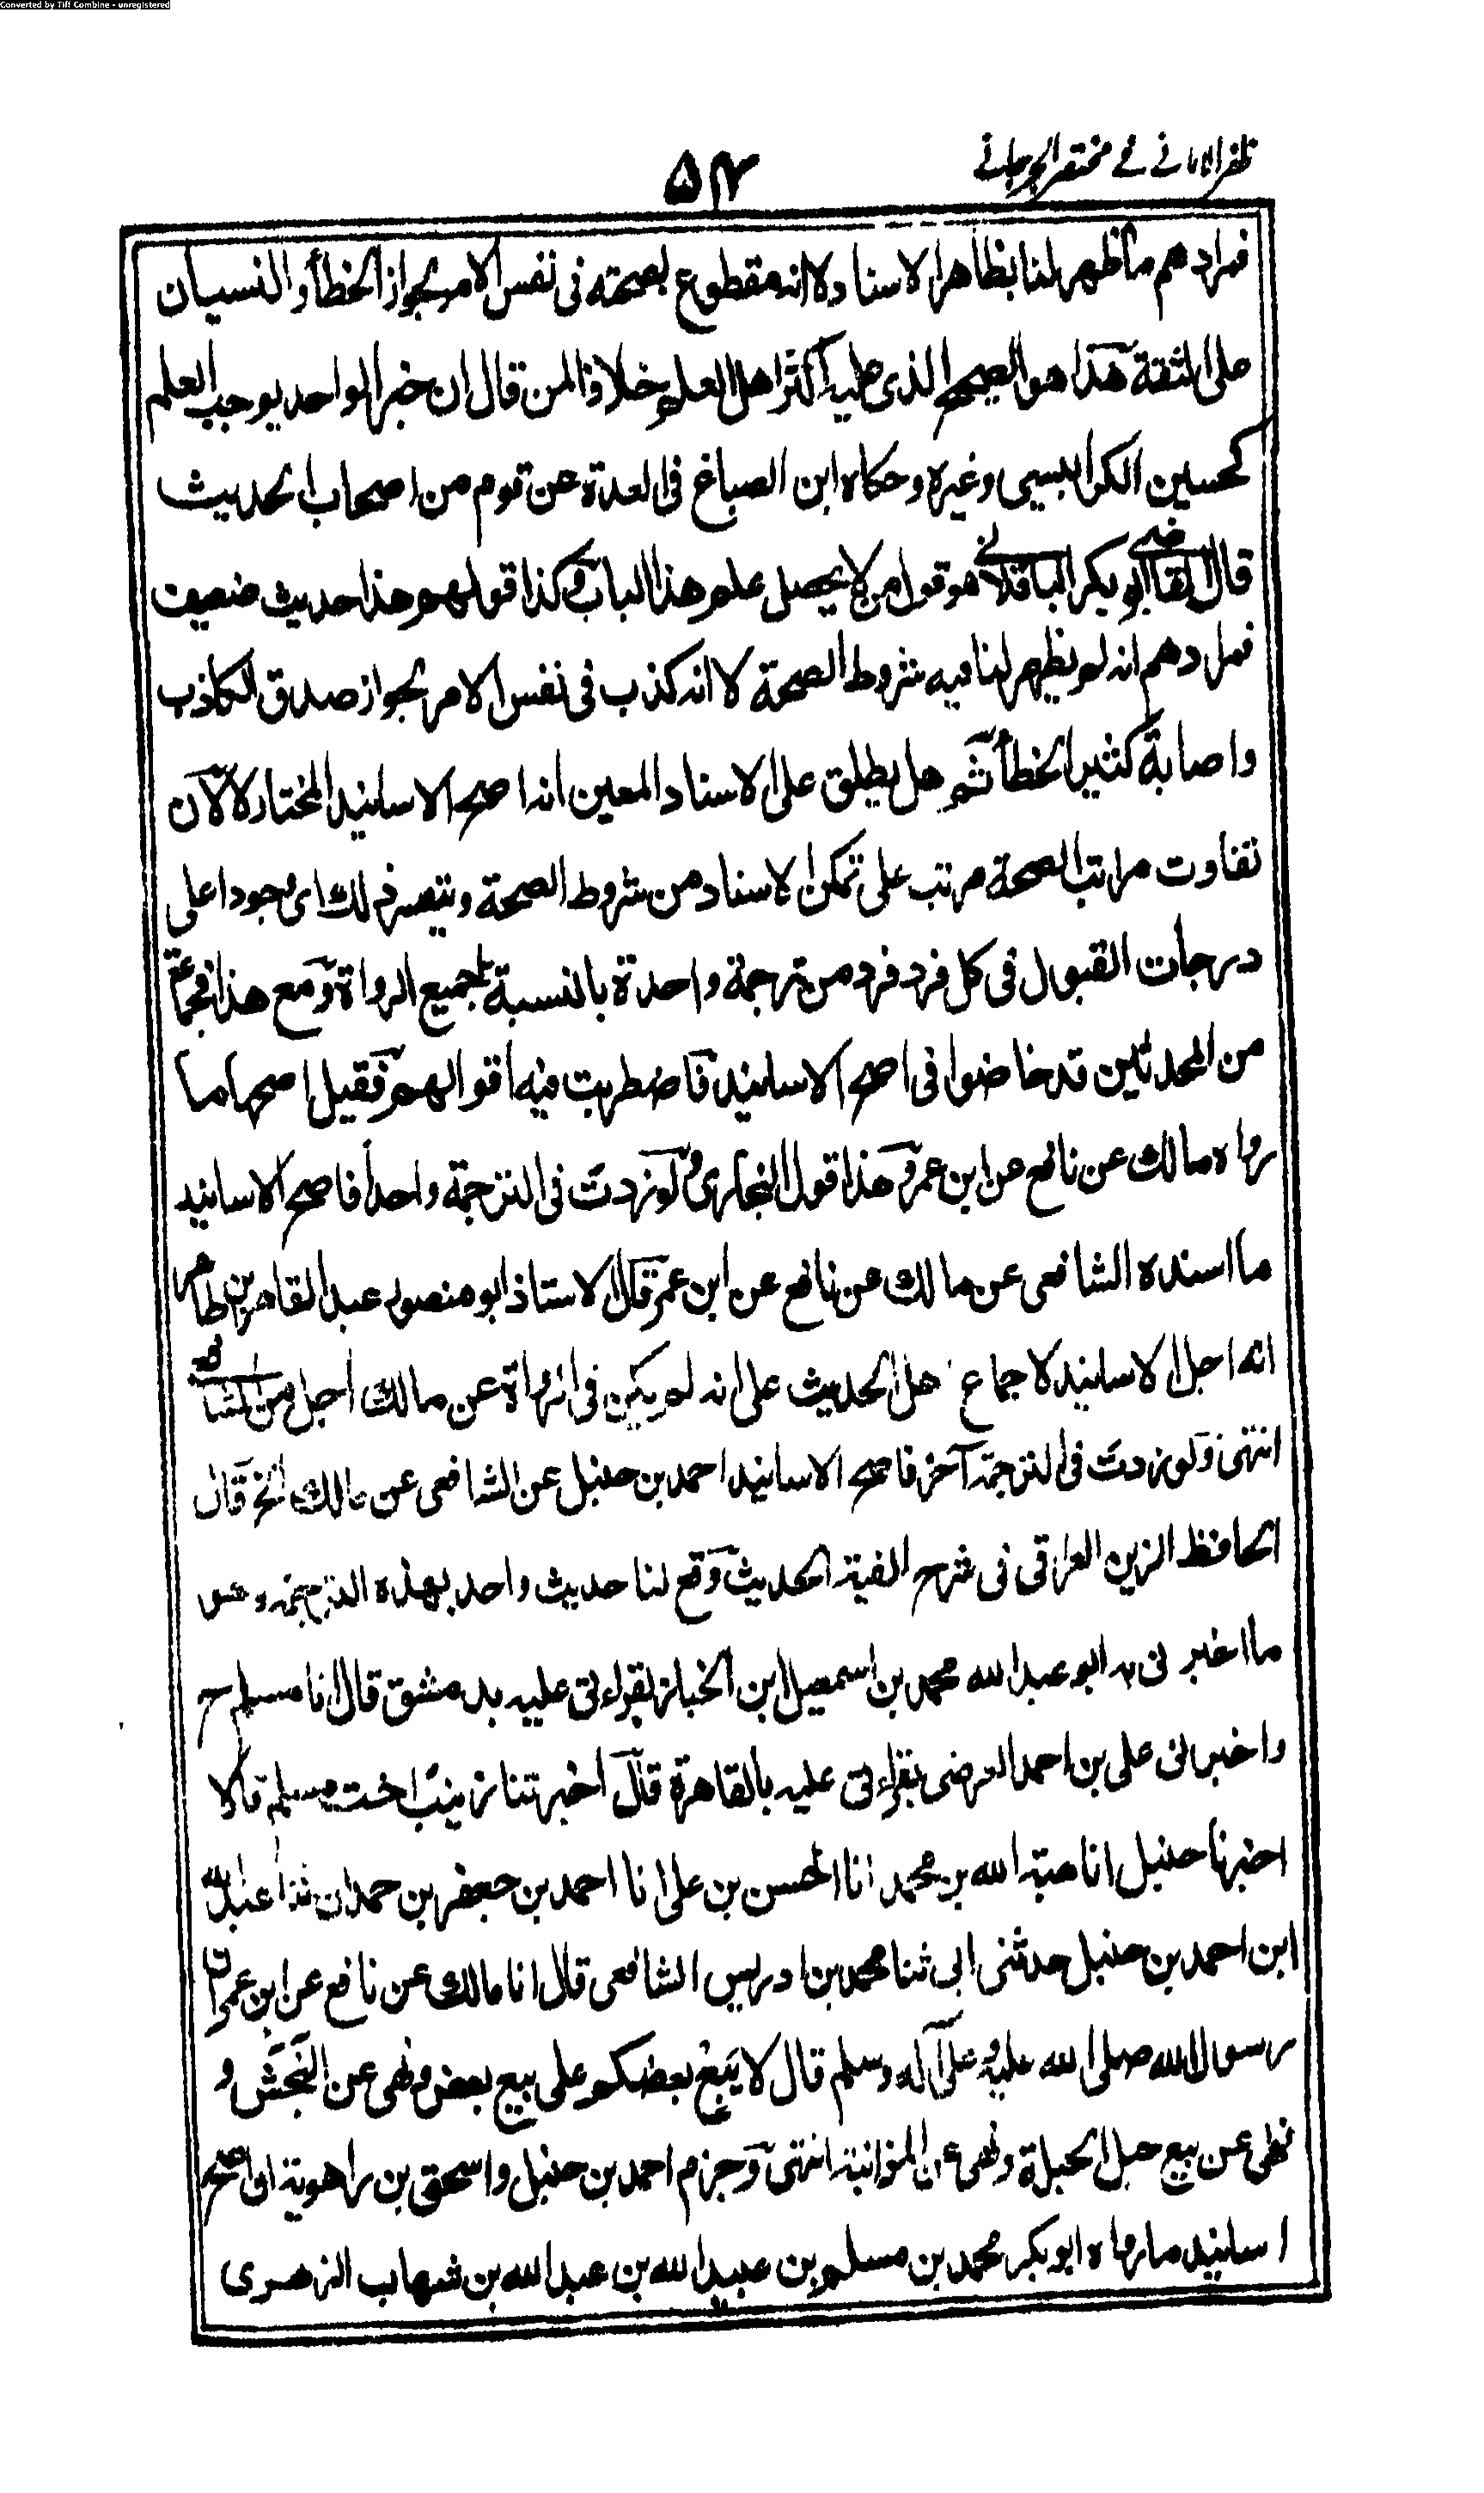 Converted by Tiff Combine - unregistered
ظفر الامانے فے مختصر الجرجانے
۵۴
فمرادهم ما ظهر لنا بظاهر الاسناد لا انه مقطوع بصحته فى نفس الامر لجواز الخطأ والنسيان
على الثقة هذا هو الصحيح الذى عليه اكثر اهل العلم خلافا لمن قال ان خبر الواحد يوجب العلم
كحسين الكرابيسى وغيره وحكاه ابن الصباغ فى العدة عن قوم من اصحاب الحديث
قال القاضى ابو بكر الباقلانى هو قول من لا يحصل علم هذا الباب وكذا قولهم هذا حديث ضعيف
فمرادهم انه لم يظهر لنا فيه شروط الصحة لا انه كذب فى نفس الامر لجواز صدق الكاذب
واصابة كثير الخطأ ثم هل يطلق على الاسناد المعين انه اصح الاسانيد المختار لا لان
تفاوت مراتب الصحة مرتب على تمكن الاسناد من شروط الصحة ويتعسر ذلك اى وجود اعلى
درجات القبول فى كل فرد فرد من ترجمة واحدة بالنسبة لجميع الرواة ومع هذا فجماعة
من المحدثين قد خاضوا فى اصح الاسانيد فاضطربت فيه اقوالهم فقيل اصحها ما
رواه مالك عن نافع عن ابن عمر وهذا قول البخارى ولو زدت فى الترجمة واحدا فاصح الاسانيد
ما اسنده الشافعى عن مالك عن نافع عن ابن عمر قال الاستاذ ابو منصور عبد القاهر بن طاهر
انه اجل الاسانيد لاجماع اهل الحديث على انه لم يكن فى الرواة عن مالك اجل من الشافعى
انتهى ولو زدت فى الترجمة آخر فاصح الاسانيد احمد بن حنبل عن الشافعى عن مالك الخ قال
الحافظ الزين العراقى فى شرح الفية الحديث وقع لنا حديث واحد بهذه الترجمة وهو
ما اخبرنى به ابو عبد الله محمد بن اسمعيل ابن الخباز بقراءتى عليه بدمشق قال انا مسلم ح
واخبرنى على بن احمد العرضى بقراءتى عليه بالقاهرة قال اخبرتنا زينب اخت مسلم قالا
اخبرنا حنبل انا هبة الله بن محمد انا الحسن بن على انا احمد بن جعفر بن حمدان ثنا عبد الله
ابن احمد بن حنبل حدثنى ابى ثنا محمد بن ادريس الشافعى قال انا مالك عن نافع عن ابن عمر ان
رسول الله صلى الله عليه وعلى آله وسلم قال لا يَبِعْ بعضكم على بيع بعض ونهى عن النَجَش و
نهى عن بيع حبل الحبلة ونهى عن المزابنة انتهى وجزم احمد بن حنبل واسحق بن راهوية ان اصح
اسانيد ما رواه ابو بكر محمد بن مسلم بن عبيد الله بن عبد الله بن شهاب الزهرى